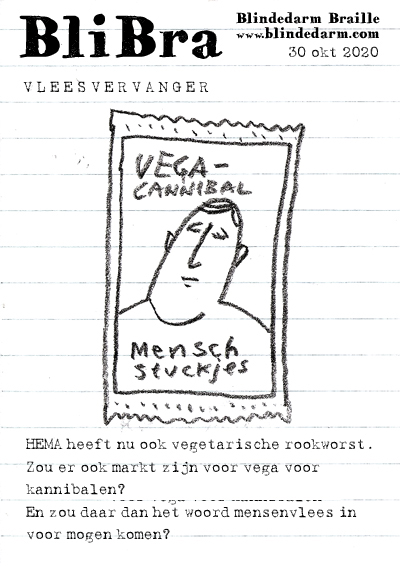 BliBra
Blindedarm Braille
www.blindedarm.com
30 okt 2020
VLEESVERVANGER
VEGA-
CANNIBAL
Mensch
stuckjes
HEMA heeft nu ook vegetarische rookworst.
Zou er ook markt zijn voor vega voor
kannibalen?
En zou daar dan het woord mensenvlees in
voor mogen komen?